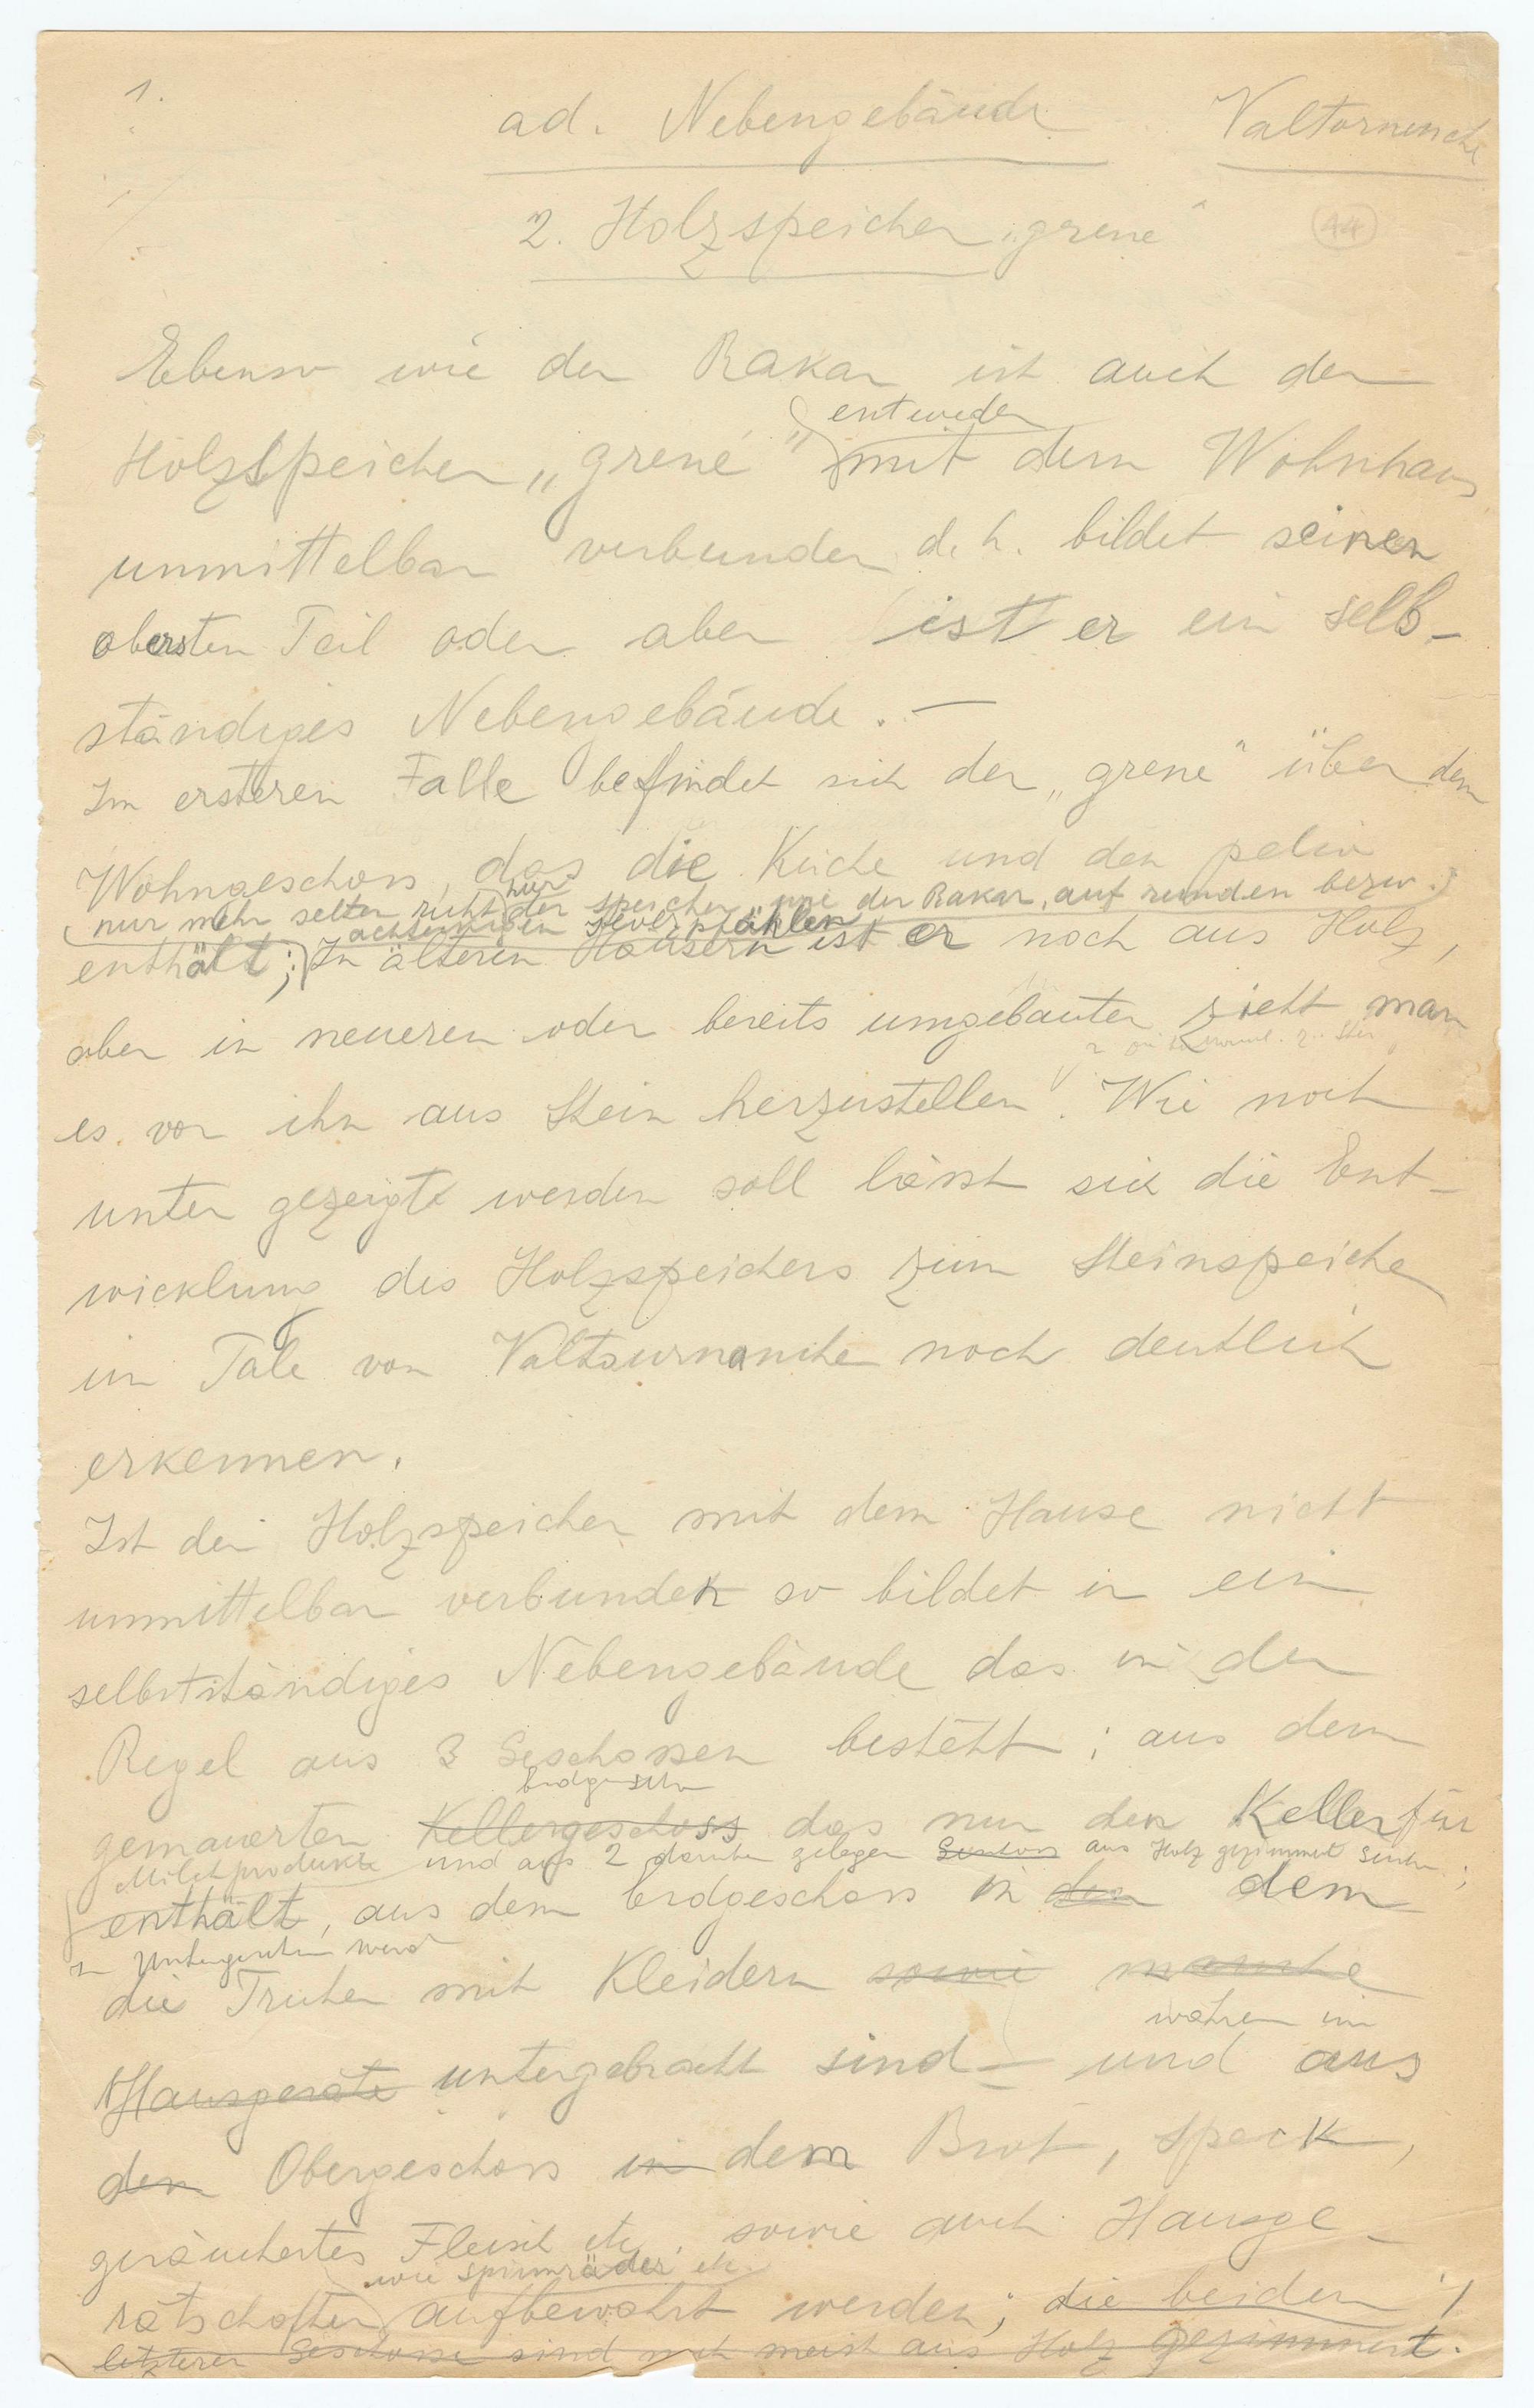 1.
ad. Nebengebäude Valtornenche
2. Holzspeicher „grene“ 44
Ebenso wie der Rakar ist auch der
entweder
Holzspeicher „grené“ mit dem Wohnhaus
unmittelbar verbunden d. h. bildet seinen
obersten Teil oder aber ist er ein selb-
ständiges Nebengebäude. —
Im ersteren Falle befindet sich der „grene“ über dem
Wohngeschoss, das die Küche und den
nur mehr selten ruht der Speicher, wie der Rakar, auf runden bezw.
achteckigen Holzpfählen
enthält; In älteren Häusern ist er noch aus Holz,
aber in neueren oder bereits umgebauten zieht man
es vor ihn aus Stein herzustellen. Wie noch
unter gezeigt werden soll lässt sich die Ent-
wicklung des Holzspeichers zum Steinspeicher
im Tale von Valtournanche noch deutlich
erkennen.
Ist der Holzspeicher mit dem Hause nicht
unmittelbar verbunden so bildet er ein
selbstständiges Nebengebäude das in der
Regel aus 3 Geschossen besteht; aus dem
Erdgeschoss
gemauerten Kellergeschoss das nur den Keller für
Milchprodukte und aus 2 darüber gelegen Geschoss aus Holz gezimmert
enthält, aus dem Erdgeschoss in den dem
im Untergeschoss
die Truhen mit Kleidern sowie manche
während im
Hausgeräte untergebracht sind – und aus
dem Obergeschoss in dem Brot, Speck,
geräuchertes Fleisch etc. sowie auch Hausge-
wie Spinnräder etc.
rätschaften aufbewahrt werden; die beiden
letzteren Geschosse sind noch meist aus Holz gezimmert.